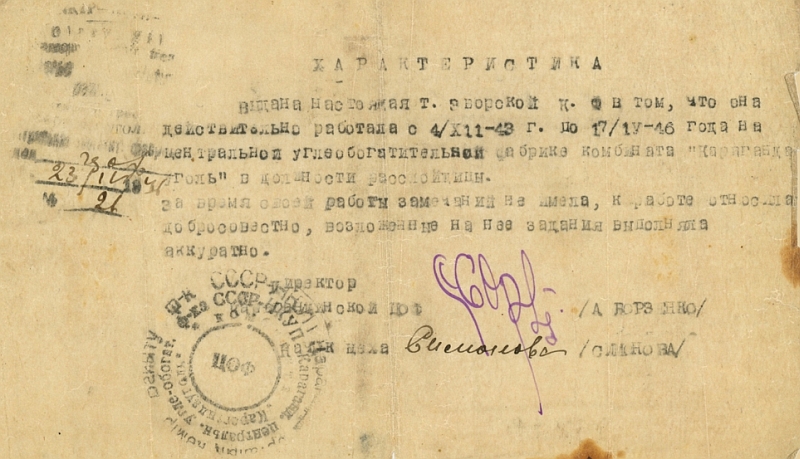 ХАРАКТЕРИСТИКА
Выдана настоящая т. Яворской К. Ф в том, что она
действительно работала с 4/XII-43 г. по 17/IV-46 года на
центральной углеобогатительной фабрике комбината "Караганда
уголь" в должности
За время своей работы замечаний не имела, к работе относила
добросовестно, возложенные на нее задания выполняла
аккуратно.
23/IV
№ 21
Директор
Карагандинской ЦОФ /А БОРЗЕНКО/
Нач-к цеха Симонова /СИМОНОВА/
СССР
ЦОФ